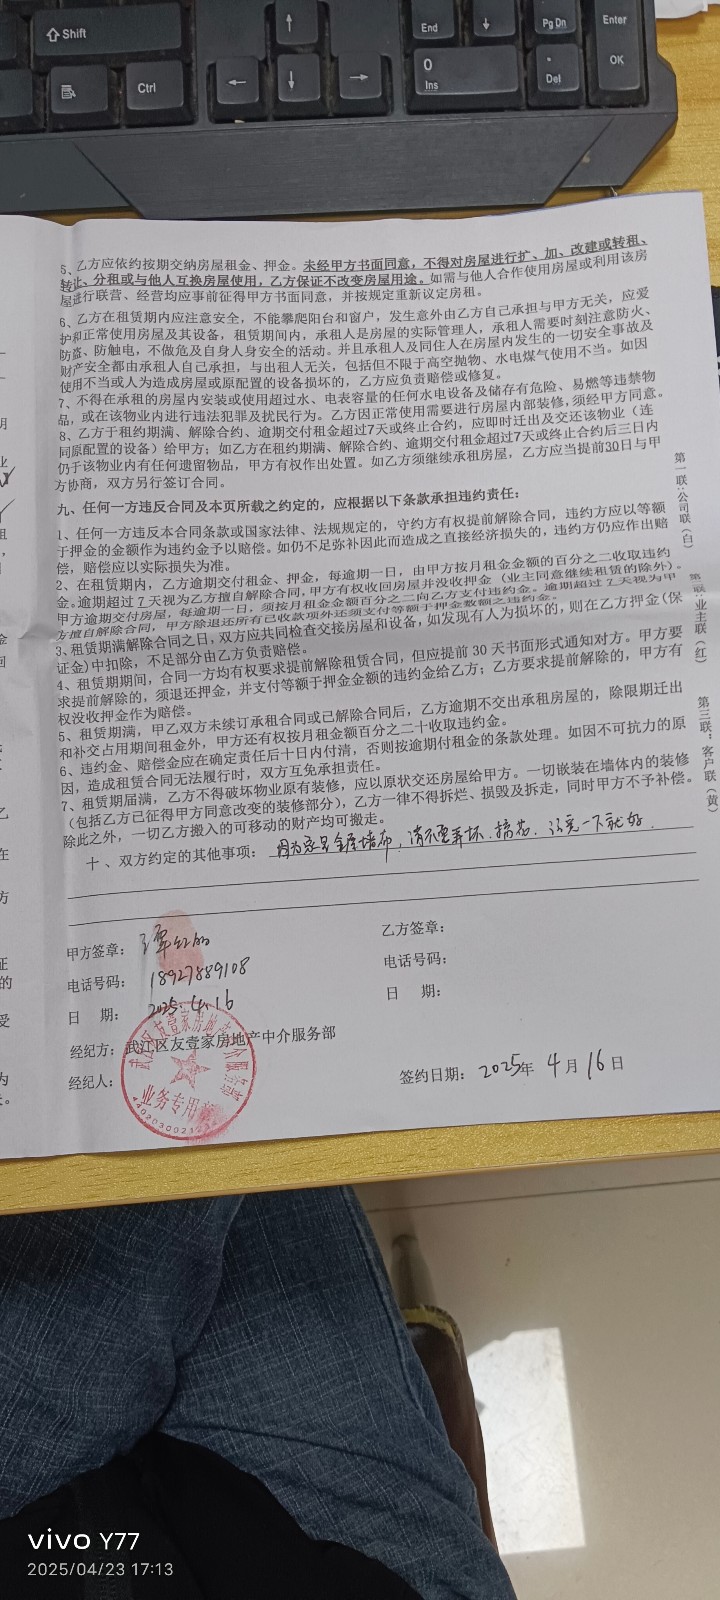 Shift
End
Pg Dn
Enter
Ctrl
0
Ins
Del
OK
5、乙方应依约按期交纳房屋租金、押金。未经甲方书面同意，不得对房屋进行扩、加、改建或转租、
转让、分租或与他人互换房屋使用，乙方保证不改变房屋用途。如需与他人合作使用房屋或利用该房
屋进行联营、经营均应事前征得甲方书面同意，并按规定重新议定房租。
6、乙方在租赁期内应注意安全，不能攀爬阳台和窗户，发生意外由乙方自己承担与甲方无关，应爱
护和正常使用房屋及其设备，租赁期间内，承租人是房屋的实际管理人，承租人需要时刻注意防火、
防盗、防触电，不做危及自身人身安全的活动。并且承租人及同住人在房屋内发生的一切安全事故及
财产安全都由承租人自己承担，与出租人无关，包括但不限于高空抛物、水电煤气使用不当。如因
使用不当或人为造成房屋或原配置的设备损坏的，乙方应负责赔偿或修复。
7、不得在承租的房屋内安装或使用超过水、电表容量的任何水电设备及储存有危险、易燃等违禁物
品，或在该物业内进行违法犯罪及扰民行为。乙方因正常使用需要进行房屋内部装修，须经甲方同意。
8、乙方于租约期满、解除合约、逾期交付租金超过7天或终止合约，应即时迁出及交还该物业（连
同原配置的设备）给甲方；如乙方在租约期满、解除合约、逾期交付租金超过7天或终止合约后三日内
仍于该物业内有任何遗留物品，甲方有权作出处置。如乙方须继续承租房屋，乙方应当提前30日与甲
方协商，双方另行签订合同。
九、任何一方违反合同及本页所载之约定的，应根据以下条款承担违约责任：
1、任何一方违反本合同条款或国家法律、法规规定的，守约方有权提前解除合同，违约方应以等额
于押金的金额作为违约金予以赔偿。如仍不足弥补因此而造成之直接经济损失的，违约方仍应作出赔
偿，赔偿应以实际损失为准。
2、在租赁期内，乙方逾期交付租金、押金，每逾期一日，由甲方按月租金金额的百分之二收取违约
金。逾期超过7天视为乙方擅自解除合同，甲方有权收回房屋并没收押金（业主同意继续租赁的除外）。
甲方逾期交付房屋，每逾期一日，须按月租金金额百分之二向乙方支付违约金。逾期超过7天视为甲
方擅自解除合同，甲方除退还所有已收款项外还须支付等额于押金数额之违约金。
3、租赁期满解除合同之日，双方应共同检查交接房屋和设备，如发现有人为损坏的，则在乙方押金（保
证金）中扣除，不足部分由乙方负责赔偿。
4、租赁期期间，合同一方均有权要求提前解除租赁合同，但应提前 30 天书面形式通知对方。甲方要
求提前解除的，须退还押金，并支付等额于押金金额的违约金给乙方；乙方要求提前解除的，甲方有
权没收押金作为赔偿。
5、租赁期满，甲乙双方未续订承租合同或已解除合同后，乙方逾期不交出承租房屋的，除限期迁出
和补交占用期间租金外，甲方还有权按月租金额百分之二十收取违约金。
6、违约金、赔偿金应在确定责任后十日内付清，否则按逾期付租金的条款处理。如因不可抗力的原
因，造成租赁合同无法履行时，双方互免承担责任。
7、租赁期届满，乙方不得破坏物业原有装修，应以原状交还房屋给甲方。一切嵌装在墙体内的装修
（包括乙方已征得甲方同意改变的装修部分），乙方一律不得拆烂、损毁及拆走，同时甲方不予补偿。
除此之外，一切乙方搬入的可移动的财产均可搬走。
十、双方约定的其他事项：因为家是全屋墙布，请不要弄坏、搞花、注意一下就好
甲方签章：
乙方签章：
电话号码：18927889108
电话号码：
日 期：2025.4.16
日 期：
经纪方：武江区友壹家房地产中介服务部
经纪人：
签约日期：2025年 4月 16日
武江区友壹家房地产中介服务部
业务专用章
第一联：公司联（白）
第二联：业主联（红）
第三联：客户联（黄）
vivo Y77
2025/04/23 17:13